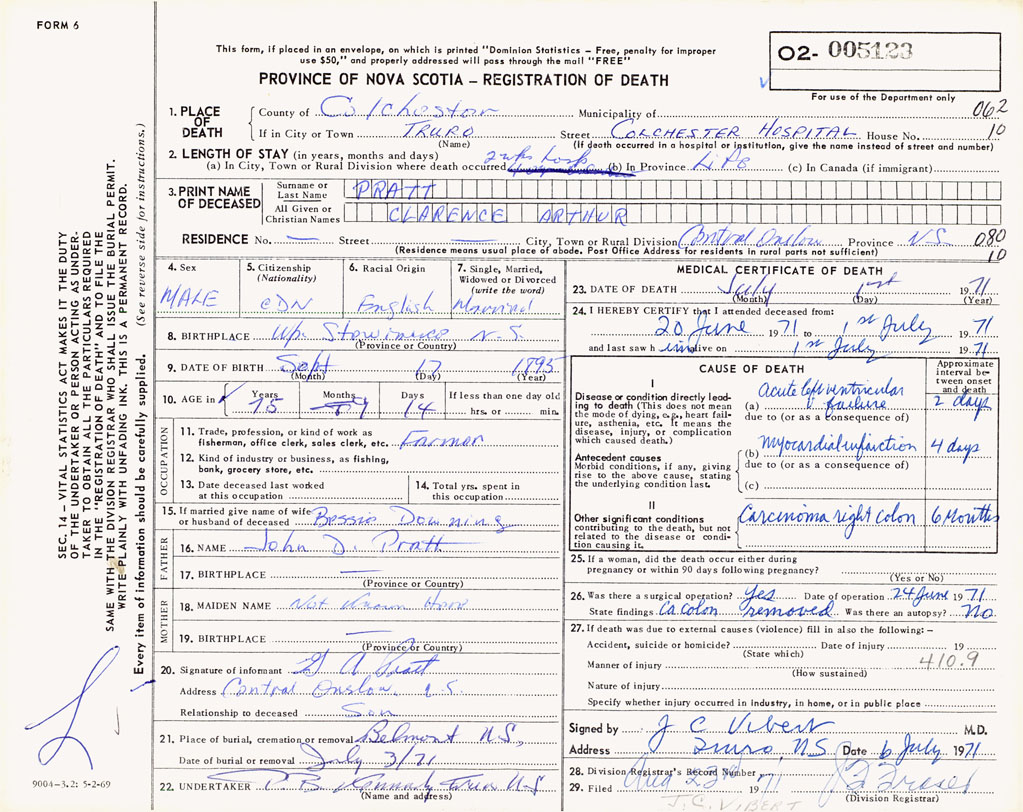 FORM 6
This form, if placed in an envelope, on which is printed "Dominion Statistics – Free, penalty for improper
use $50," and properly addressed will pass through the mail "FREE"
PROVINCE OF NOVA SCOTIA – REGISTRATION OF DEATH
O2- 005123
For use of the Department only
SEC. 14 – VITAL STATISTICS ACT MAKES IT THE DUTY
OF THE UNDERTAKER OR PERSON ACTING AS UNDER-
TAKER TO OBTAIN ALL THE PARTICULARS REQUIRED
IN THE "REGISTRATION OF DEATH" AND TO FILE THE
SAME WITH THE DIVISION REGISTRAR WHO SHALL ISSUE THE BURIAL PERMIT.
WRITE PLAINLY WITH UNFADING INK. THIS IS A PERMANENT RECORD.
Every item of information should be carefully supplied. (See reverse side for instructions.)
1. PLACE OF DEATH
County of Colchester Municipality of 062
If in City or Town TRURO Street COLCHESTER HOSPITAL House No. 10
(Name) (If death occurred in a hospital or institution, give the name instead of street and number)
2. LENGTH OF STAY (in years, months and days)
(a) In City, Town or Rural Division where death occurred 2 wks Hosp (b) In Province Life (c) In Canada (if immigrant)
3. PRINT NAME OF DECEASED
Surname or Last Name PRATT
All Given or Christian Names CLARENCE ARTHUR
RESIDENCE No. — Street — City, Town or Rural Division Central Onslow Province N.S. 080
(Residence means usual place of abode. Post Office Address for residents in rural parts not sufficient) 10
4. Sex MALE
5. Citizenship (Nationality) CDN
6. Racial Origin English
7. Single, Married, Widowed or Divorced (write the word) Married
8. BIRTHPLACE Up. Stewiacke N.S.
(Province or Country)
9. DATE OF BIRTH Sept 17 1895
(Month) (Day) (Year)
10. AGE in Years 75 Months 9 Days 14 If less than one day old hrs. or min.
OCCUPATION
11. Trade, profession, or kind of work as
fisherman, office clerk, sales clerk, etc. Farmer
12. Kind of industry or business, as fishing,
bank, grocery store, etc.
13. Date deceased last worked at this occupation
14. Total yrs. spent in this occupation
15. If married give name of wife
or husband of deceased Bessie Downing
FATHER
16. NAME John D. Pratt
17. BIRTHPLACE —
(Province or Country)
MOTHER
18. MAIDEN NAME Not Known Here
19. BIRTHPLACE —
(Province or Country)
20. Signature of informant A Pratt
Address Central Onslow, N.S.
Relationship to deceased Son
21. Place of burial, cremation or removal Belmont N.S.
Date of burial or removal July 3/71
22. UNDERTAKER Truro N.S
(Name and address)
MEDICAL CERTIFICATE OF DEATH
23. DATE OF DEATH July 1st 1971
(Month) (Day) (Year)
24. I HEREBY CERTIFY that I attended deceased from:
20 June 1971 to 1st July 1971
and last saw him alive on 1st July 1971
CAUSE OF DEATH
Approximate interval between onset and death
I
Disease or condition directly leading to death (This does not mean the mode of dying, e.g., heart failure, asthenia, etc. It means the disease, injury, or complication which caused death.)
(a) Acute left ventricular failure 2 days
due to (or as a consequence of)
Antecedent causes
Morbid conditions, if any, giving rise to the above cause, stating the underlying condition last.
(b) Myocardial infarction 4 days
due to (or as a consequence of)
(c)
II
Other significant conditions
contributing to the death, but not related to the disease or condition causing it.
Carcinoma right colon 6 Months
25. If a woman, did the death occur either during
pregnancy or within 90 days following pregnancy?
(Yes or No)
26. Was there a surgical operation? Yes Date of operation 24 June 1971
State findings Ca colon removed Was there an autopsy? No
27. If death was due to external causes (violence) fill in also the following: –
Accident, suicide or homicide? Date of injury 19
(State which)
Manner of injury 410.9
(How sustained)
Nature of injury
Specify whether injury occurred in industry, in home, or in public place
Signed by J C Vibert M.D.
Address Truro NS Date 6 July 1971
28. Division Registrar's Record Number
29. Filed Aug 23rd 1971 Fraser
J.C. VIBERT (Division Registrar)
9004-3.2: 5-2-69